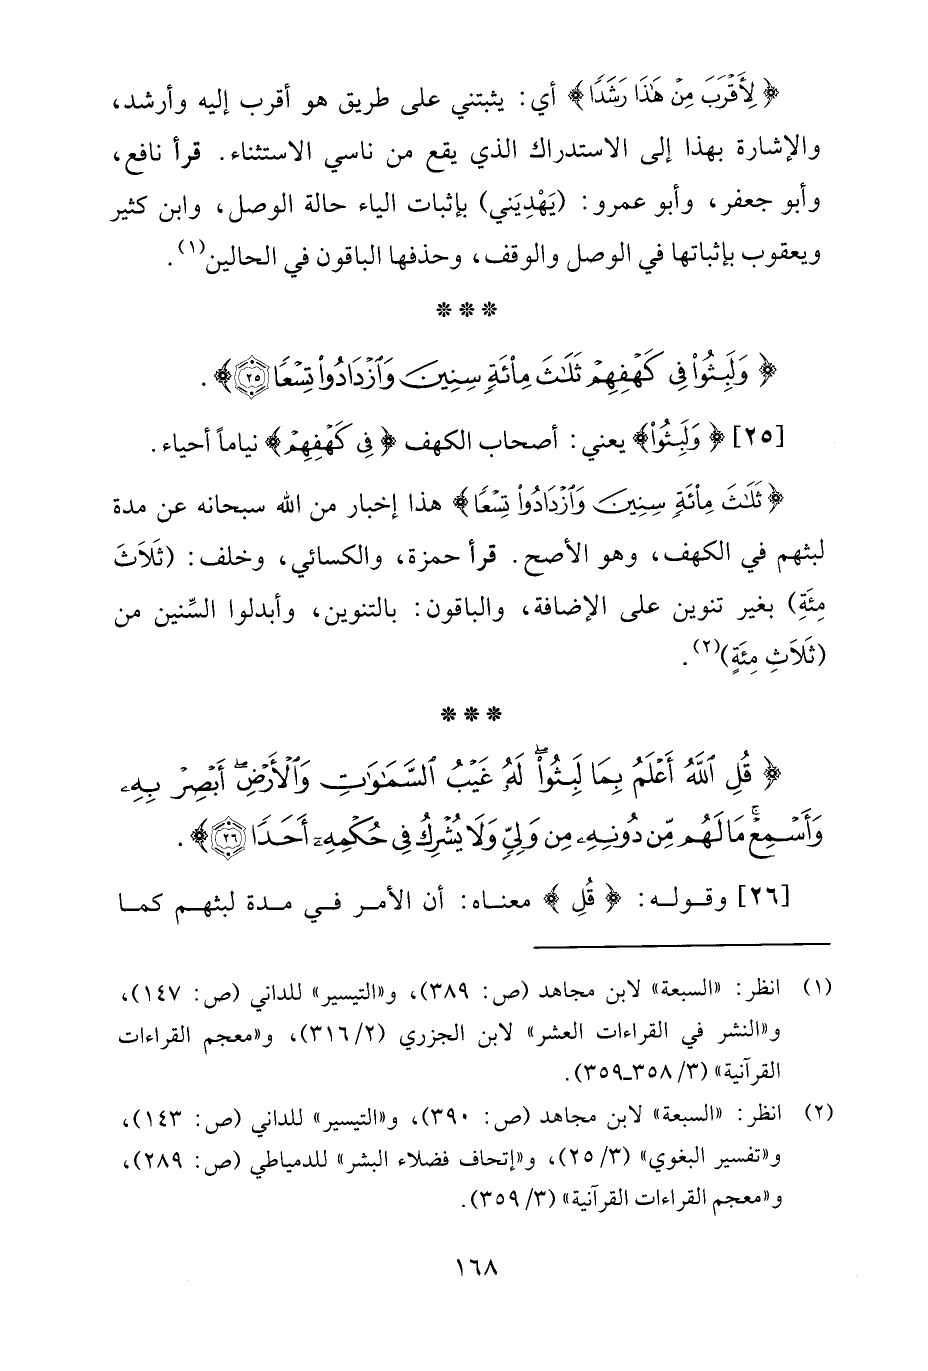 ﴿ لِأَقْرَبَ مِنْ هَٰذَا رَشَدًا ﴾ أي: يثبتني على طريق هو أقرب إليه وأرشد،
والإشارة بهذا إلى الاستدراك الذي يقع من ناسي الاستثناء. قرأ نافع،
وأبو جعفر، وأبو عمرو: (يَهْدِيَنِي) بإثبات الياء حالة الوصل، وابن كثير
ويعقوب بإثباتها في الوصل والوقف، وحذفها الباقون في الحالين(١).
* * *
﴿ وَلَبِثُوا۟ فِى كَهْفِهِمْ ثَلَٰثَ مِا۟ئَةٍ سِنِينَ وَٱزْدَادُوا۟ تِسْعًا ٢٥ ﴾.
[٢٥] ﴿ وَلَبِثُوا۟ ﴾ يعني: أصحاب الكهف ﴿ فِى كَهْفِهِمْ ﴾ نياماً أحياء.
﴿ ثَلَٰثَ مِا۟ئَةٍ سِنِينَ وَٱزْدَادُوا۟ تِسْعًا ﴾ هذا إخبار من الله سبحانه عن مدة
لبثهم في الكهف، وهو الأصح. قرأ حمزة، والكسائي، وخلف: (ثَلاَثَ
مِئَةِ) بغير تنوين على الإضافة، والباقون: بالتنوين، وأبدلوا السِّنين من
(ثَلاَثِ مِئَةٍ)(٢).
* * *
﴿ قُلِ ٱللَّهُ أَعْلَمُ بِمَا لَبِثُوا۟ ۖ لَهُۥ غَيْبُ ٱلسَّمَٰوَٰتِ وَٱلْأَرْضِ ۖ أَبْصِرْ بِهِۦ
وَأَسْمِعْ ۚ مَا لَهُم مِّن دُونِهِۦ مِن وَلِىٍّ وَلَا يُشْرِكُ فِى حُكْمِهِۦٓ أَحَدًا ٢٦ ﴾.
[٢٦] وقوله: ﴿ قُلِ ﴾ معناه: أن الأمر في مدة لبثهم كما
(١) انظر: «السبعة» لابن مجاهد (ص: ٣٨٩)، و«التيسير» للداني (ص: ١٤٧)،
و«النشر في القراءات العشر» لابن الجزري (٢/ ٣١٦)، و«معجم القراءات
القرآنية» (٣/ ٣٥٨ـ٣٥٩).
(٢) انظر: «السبعة» لابن مجاهد (ص: ٣٩٠)، و«التيسير» للداني (ص: ١٤٣)،
و«تفسير البغوي» (٣/ ٢٥)، و«إتحاف فضلاء البشر» للدمياطي (ص: ٢٨٩)،
و«معجم القراءات القرآنية» (٣/ ٣٥٩).
١٦٨